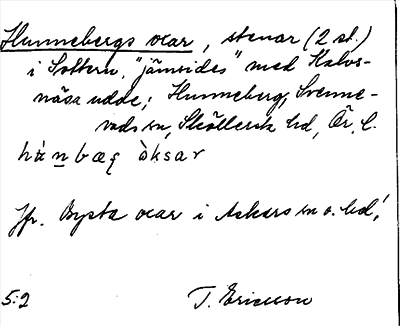 Hunnebergs oxar, stenar (2 st.)
i Sottern, "jämsides" med Kalvs-
näsa udde; Hunneberg, Svenne-
vads sn, Sköllersta hd, Ör. l.
oksar
Jfr. Bysta oxar i Askers sn o. hd!
5:2 T. Ericsson